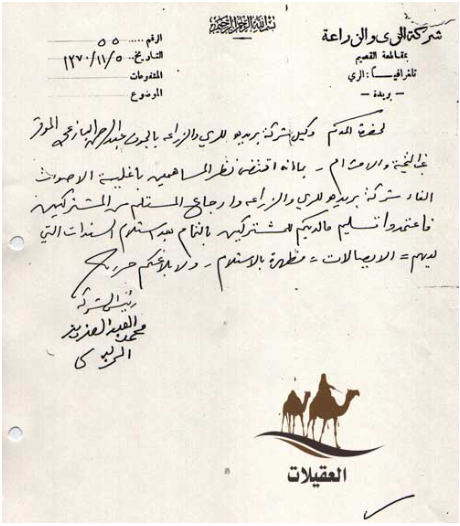 بسم الله الرحمن الرحيم
شركة الري والزراعة
بمقاطعة القصيم
تلغرافياً: الري
- بريدة -
الرقم ٥٥
التاريخ ١٣٧٠/١١/٥
الملفوفات
الموضوع
لحضرة المكرم وكيل شركة بريده للري والزراعه بالجوف عبدالرحمن اليازعي الموقر
بعد التحية والاحترام - بما انه اقتضى نظر المساهمين باغلبية الاصوات
الغاء شركة بريده للري والزراعه وارجاع المستلم من المشتركين
فاعتمدوا تسليم مالديكم للمشتركين بالتمام بعد استلام السندات التي
لديهم = الايصالات = مظهرة بالاستلام - ولابلاغكم حرر
رئيس الشركة
محمد العبدالعزيز
العقيلات